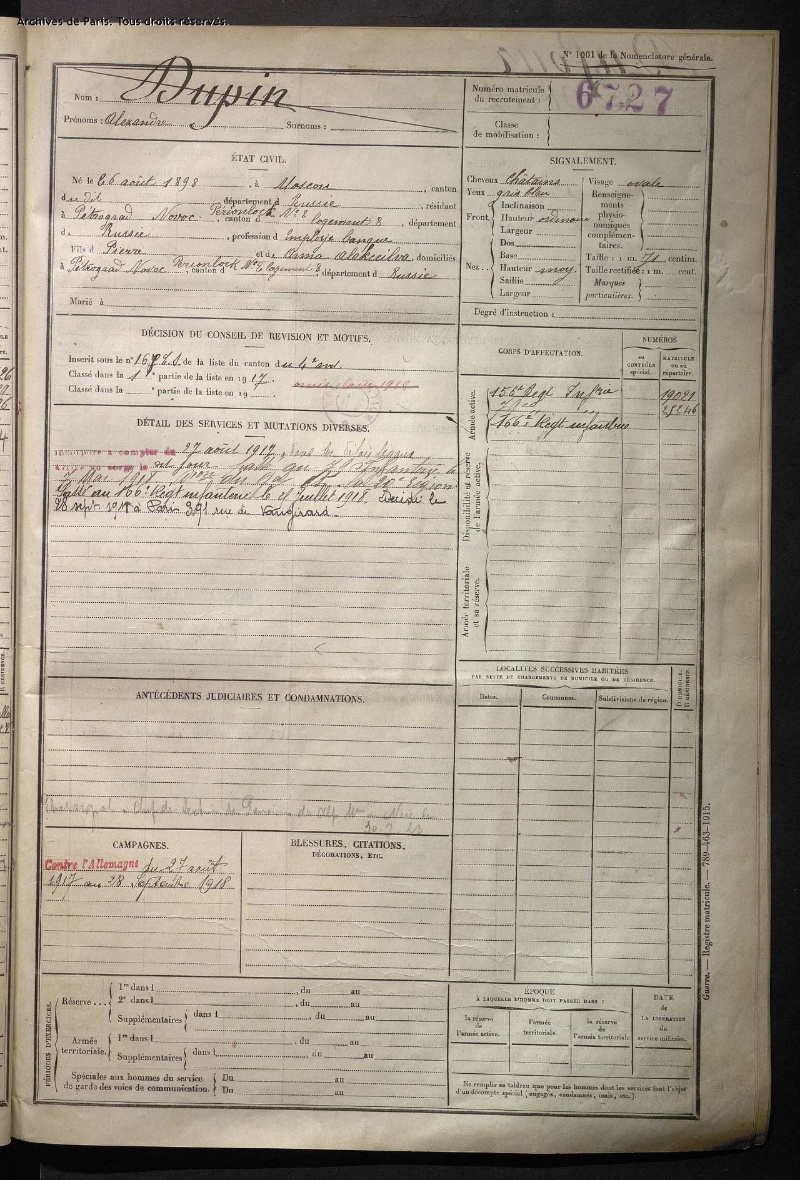 Archives de Paris. Tous droits réservés.
N° 1001 de la Nomenclature générale.
Nom : Dupin
Prénoms : Alexandre Surnoms :
Numéro matricule du recrutement : 6727
Classe de mobilisation :
ÉTAT CIVIL.
Né le 26 août 1898, à Moscou, canton
du dit, département d Russie, résidant
à Pétrograd Novoc Perionlock N° 2, canton d logement 8, département
d Russie, profession d Employé banque
Fils d Pierre et de Anna domiciliés
à Pétrograd Novoc Perionlock N° 2, canton d logement 8, département d Russie
Marié à
SIGNALEMENT.
Cheveux Chatains
Yeux gris bleu
Front Inclinaison
Hauteur ordinaire
Largeur
Nez Dos
Base
Hauteur moy
Saillie
Largeur
Visage ovale
Renseignements physionomiques complémentaires.
Taille : 1 m. 71 centim.
Taille rectifiée : 1 m. cent.
Marques particulières.
Degré d'instruction :
DÉCISION DU CONSEIL DE REVISION ET MOTIFS.
Inscrit sous le n° de la liste du canton du 4e arr.
Classé dans la 1e partie de la liste en 1917. omis classe 1918
Classé dans la e partie de la liste en 19
DÉTAIL DES SERVICES ET MUTATIONS DIVERSES.
Incorporé à compter du 27 août 1917,
Arrivé au corps le dit jour
7 Mai 1918.
Passé au 166e Regt infanterie le Juillet 1918. Décédé le
28 sept. 1918 à Paris 391 rue de Vaugirard.
CORPS D'AFFECTATION.
NUMÉROS
DU CONTRÔLE spécial.
MATRICULE ou au répertoire.
Armée active.
156e Regt Inf rie 19021
166e Regt infanterie
Disponibilité et réserve de l'armée active.
Armée territoriale et sa réserve.
LOCALITÉS SUCCESSIVES HABITÉES
PAR SUITE DE CHANGEMENTS DE DOMICILE OU DE RÉSIDENCE.
Dates. Communes. Subdivisions de région. D. DOMICILE. R. RÉSIDENCE.
ANTÉCÉDENTS JUDICIAIRES ET CONDAMNATIONS.
CAMPAGNES.
Contre l'Allemagne du 27 août
1917 au 28 Septembre 1918
BLESSURES, CITATIONS,
DÉCORATIONS, ETC.
PÉRIODES D'EXERCICES.
Réserve... 1re dans l , du au
2e dans l , du au
Supplémentaires dans l , du au
Armée territoriale. 1re dans l , du au
Supplémentaires dans l , du au
Spéciales aux hommes du service de garde des voies de communication. Du au
Du au
ÉPOQUE
À LAQUELLE L'HOMME DOIT PASSER DANS :
la réserve de l'armée active.
l'armée territoriale.
la réserve de l'armée territoriale.
DATE DE LA LIBÉRATION du service militaire.
Ne remplir ce tableau que pour les hommes dont les services font l'objet d'un décompte spécial (engagés, condamnés, omis, etc.).
Guerre. — Registre matricule. — 789-463-1915.